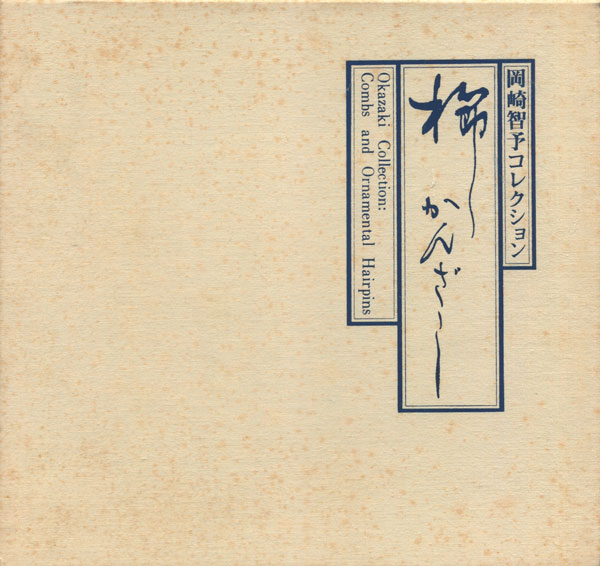 岡崎智予コレクション
櫛かんざし
Okazaki Collection:
Combs and Ornamental Hairpins